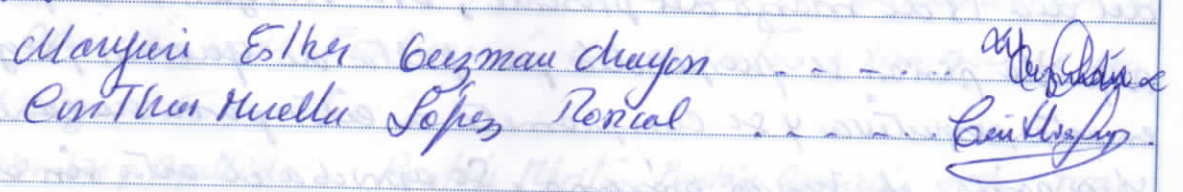 Maryuri Esther Guzman Mayon - - - - . . .
CinThia Mirella López Roncal - - - - - - Cinthia